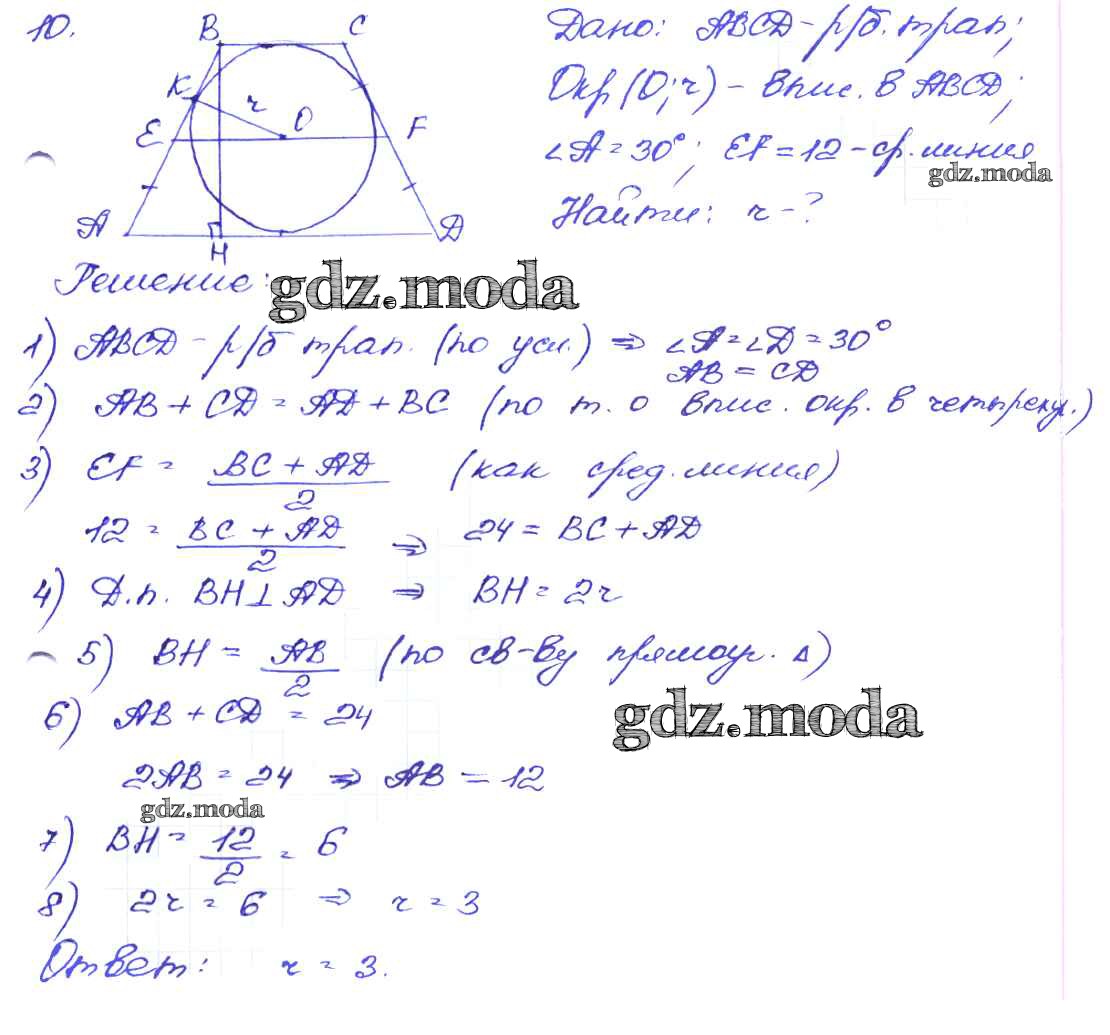 10.
B C
K r O
E F
A H D
Дано: ABCD – р/б. трап;
Окр (O; r) – впис. в ABCD;
∠A = 30°; EF = 12 – ср. линия
gdz.moda
Найти: r - ?
Решение:
gdz.moda
1) ABCD – р/б трап. (по усл.) ⇒ ∠A = ∠D = 30°
AB = CD
2) AB + CD = AD + BC (по т. о впис. окр. в четырехуг.)
3) EF = (BC + AD)/2 (как сред. линия)
12 = (BC + AD)/2 ⇒ 24 = BC + AD
4) Д.п. BH ⊥ AD ⇒ BH = 2r
5) BH = AB/2 (по св-ву прямоуг. Δ)
gdz.moda
6) AB + CD = 24
2AB = 24 ⇒ AB = 12
gdz.moda
7) BH = 12/2 = 6
8) 2r = 6 ⇒ r = 3
Ответ: r = 3.